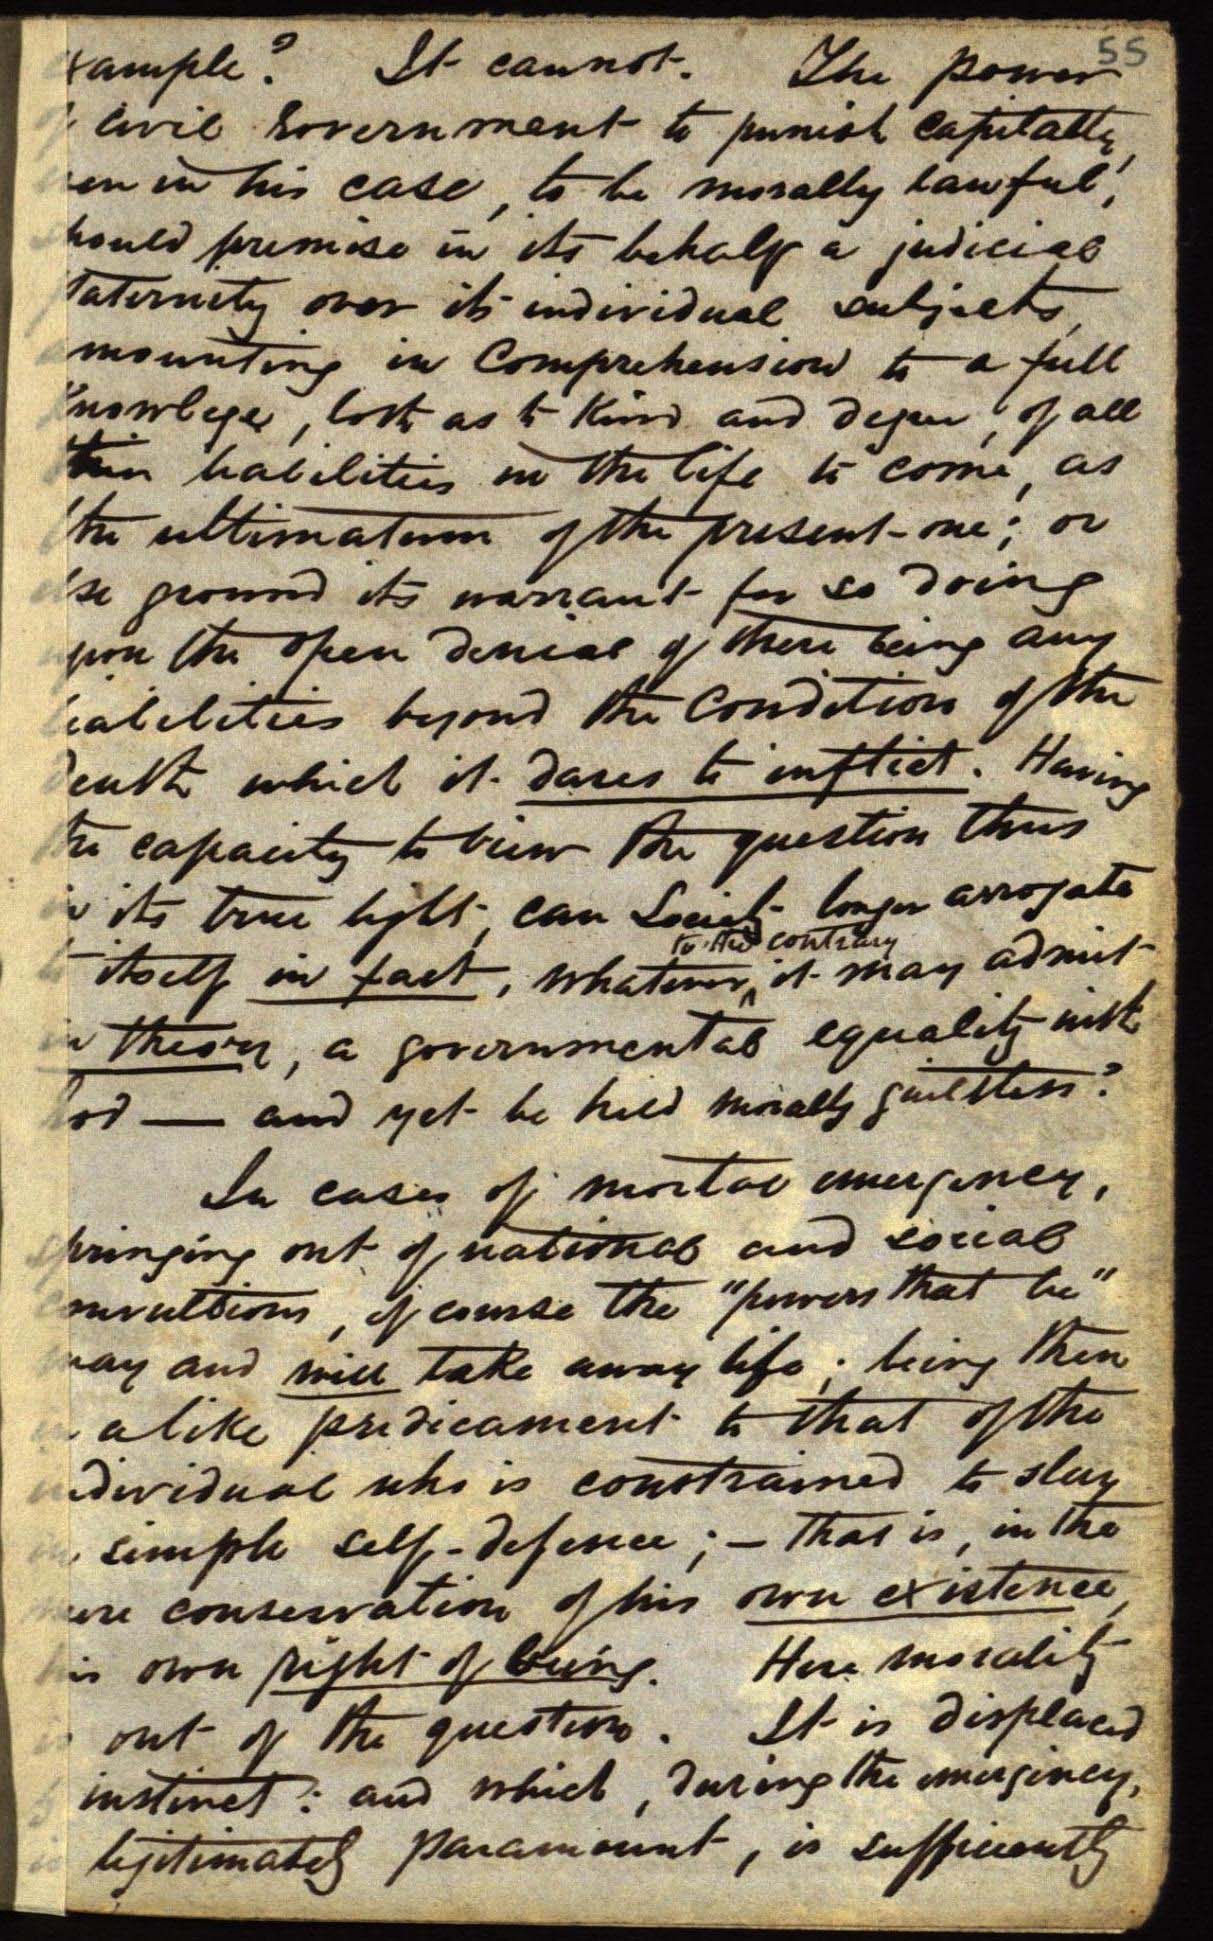 55
xample? It cannot. The power
of civil Government to punish capitally,
ven in his case, to be morally lawful,
should premise in its behalf a judicial
paternity over its individual subjects,
amounting in Comprehension to a full
Knowlege, both as to Kind and degree, of all
their liabilities in the life to come, as
the ultimatum of the present one; or
else ground its warrant for so doing
upon the open denial of there being any
liabilities beyond the Condition of the
death which it dares to inflict. Having
the capacity to view the question thus
in its true light, can Society longer arrogate
to the contrary
to itself in fact, whatever it may admit
in theory, a governmental equality with
God — and yet be held morally guiltless?
In cases of mortal emergency,
springing out of national and social
convultsions, of course the "powers that be"
may and will take away life; being then
in a like predicament to that of the
individual who is constrained to slay
in simple self-defence; — that is, in the
mere conservation of his own existence,
his own right of being. Here morality
is out of the question. It is displaced
by instinct: and which, during the emergency,
is legitimately paramount, is sufficiently